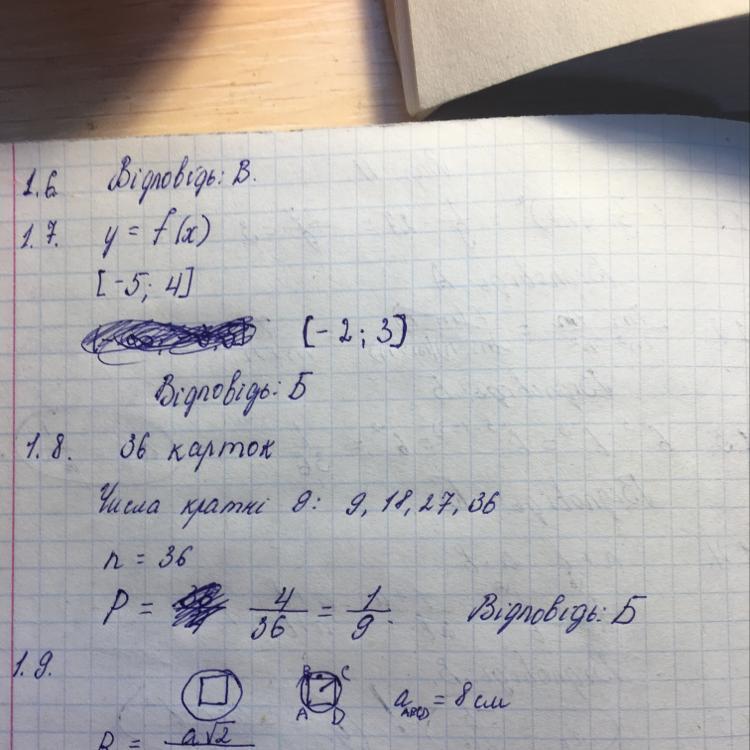 1.6. Відповідь: В.
1.7. y = f(x)
[-5; 4]
[-2; 3]
Відповідь: Б
1.8. 36 карток
Числа кратні 9: 9, 18, 27, 36
n = 36
P = 4/36 = 1/9. Відповідь: Б
1.9.
B C
A D
a_ABCD = 8 см
R = a√2